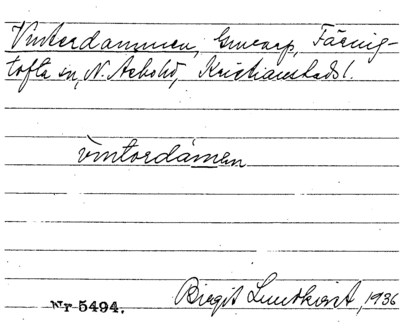 Vinterdammen, Gmeorp, Färnig-
tofta sn, N. Åsbo hd, Kristianstads l.
vintordámen
Nr 5494.
Birgit Lundkvist, 1936